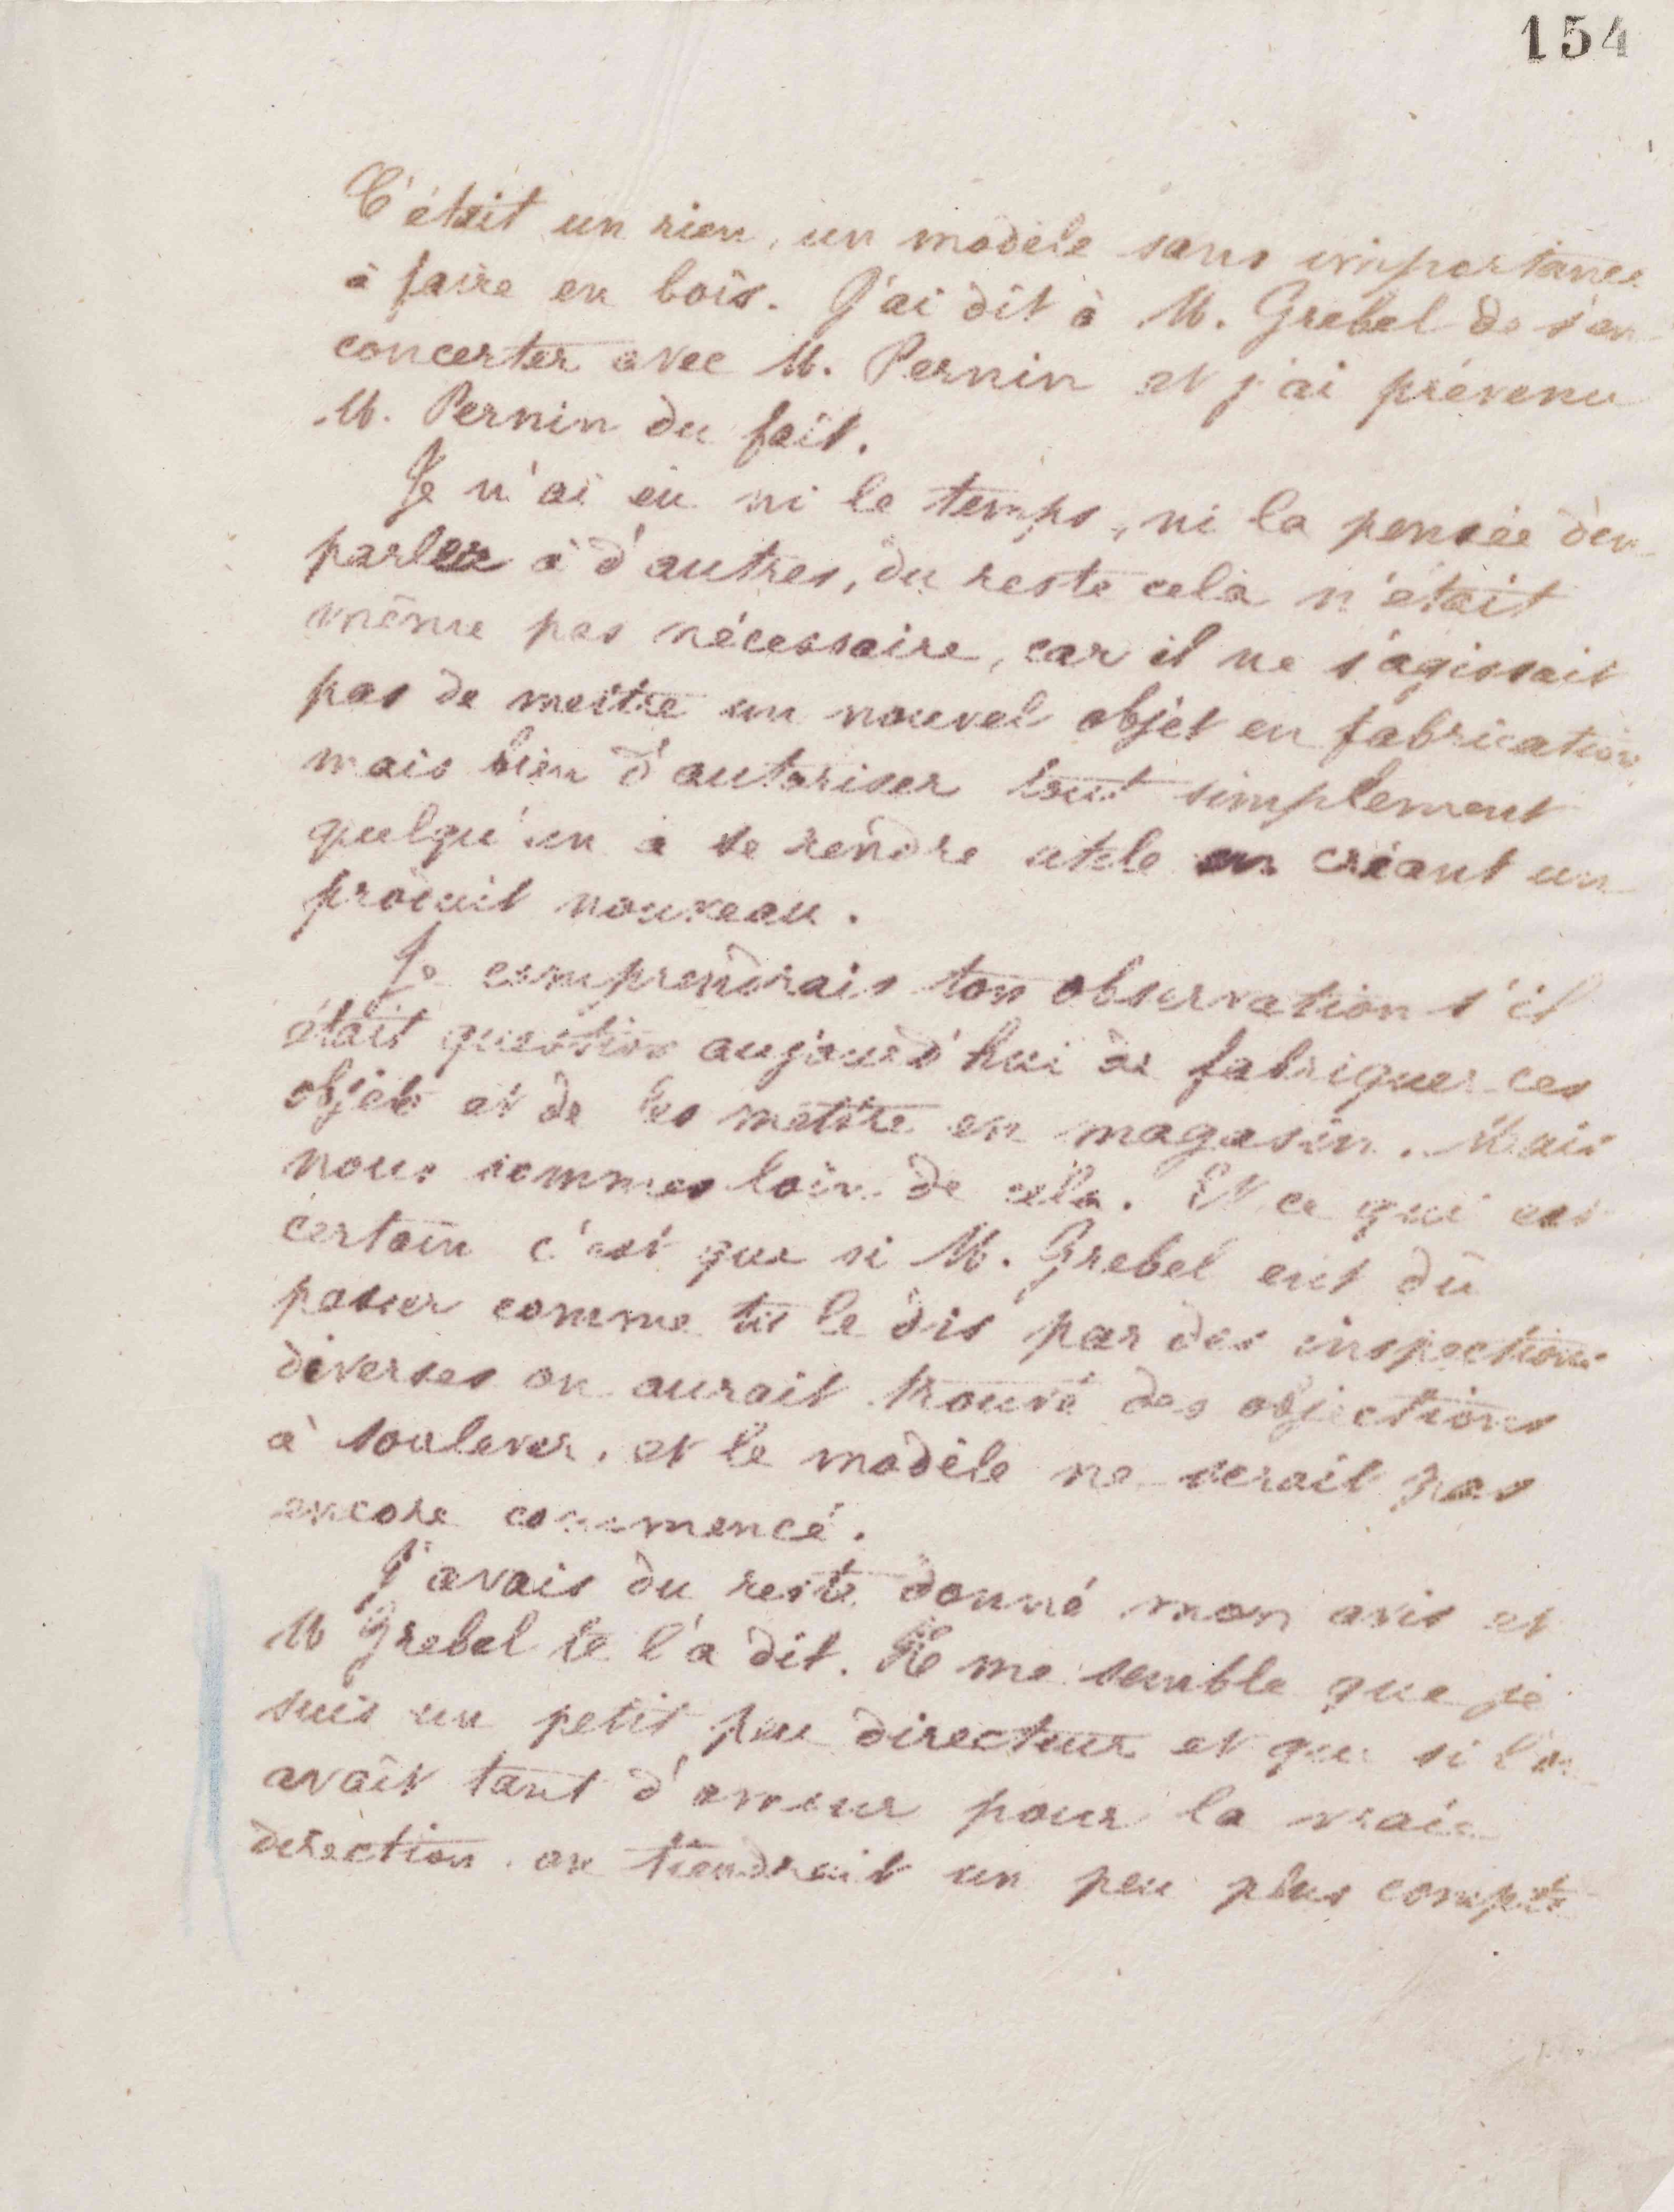 154
C'était un rien, un modèle sans importance
à faire en bois. J'ai dit à M. Grebel de s'en
concerter avec M. Pernin et j'ai prévenu
M. Pernin du fait.
Je n'ai eu ni le temps, ni la pensée d'en
parler à d'autres, du reste cela n'était
même pas nécessaire, car il ne s'agissait
pas de mettre un nouvel objet en fabrication
mais bien d'autoriser tout simplement
quelqu'un à se rendre utile en créant un
produit nouveau.
Je comprendrais ton observation s'il
était question aujourd'hui de fabriquer ces
objets et de les mettre en magasin. Mais
nous sommes loin de cela. Et ce qui est
certain c'est que si M. Grebel eut dû
passer comme tu le dis par des inspections
diverses on aurait trouvé des objections
à soulever, et le modèle ne serait pas
encore commencé.
J'avais du reste donné mon avis et
M Grebel te l'a dit. Il me semble que je
suis un petit peu directeur et que si l'on
avait tant d'amour pour la vraie
direction on tiendrait un peu plus compte